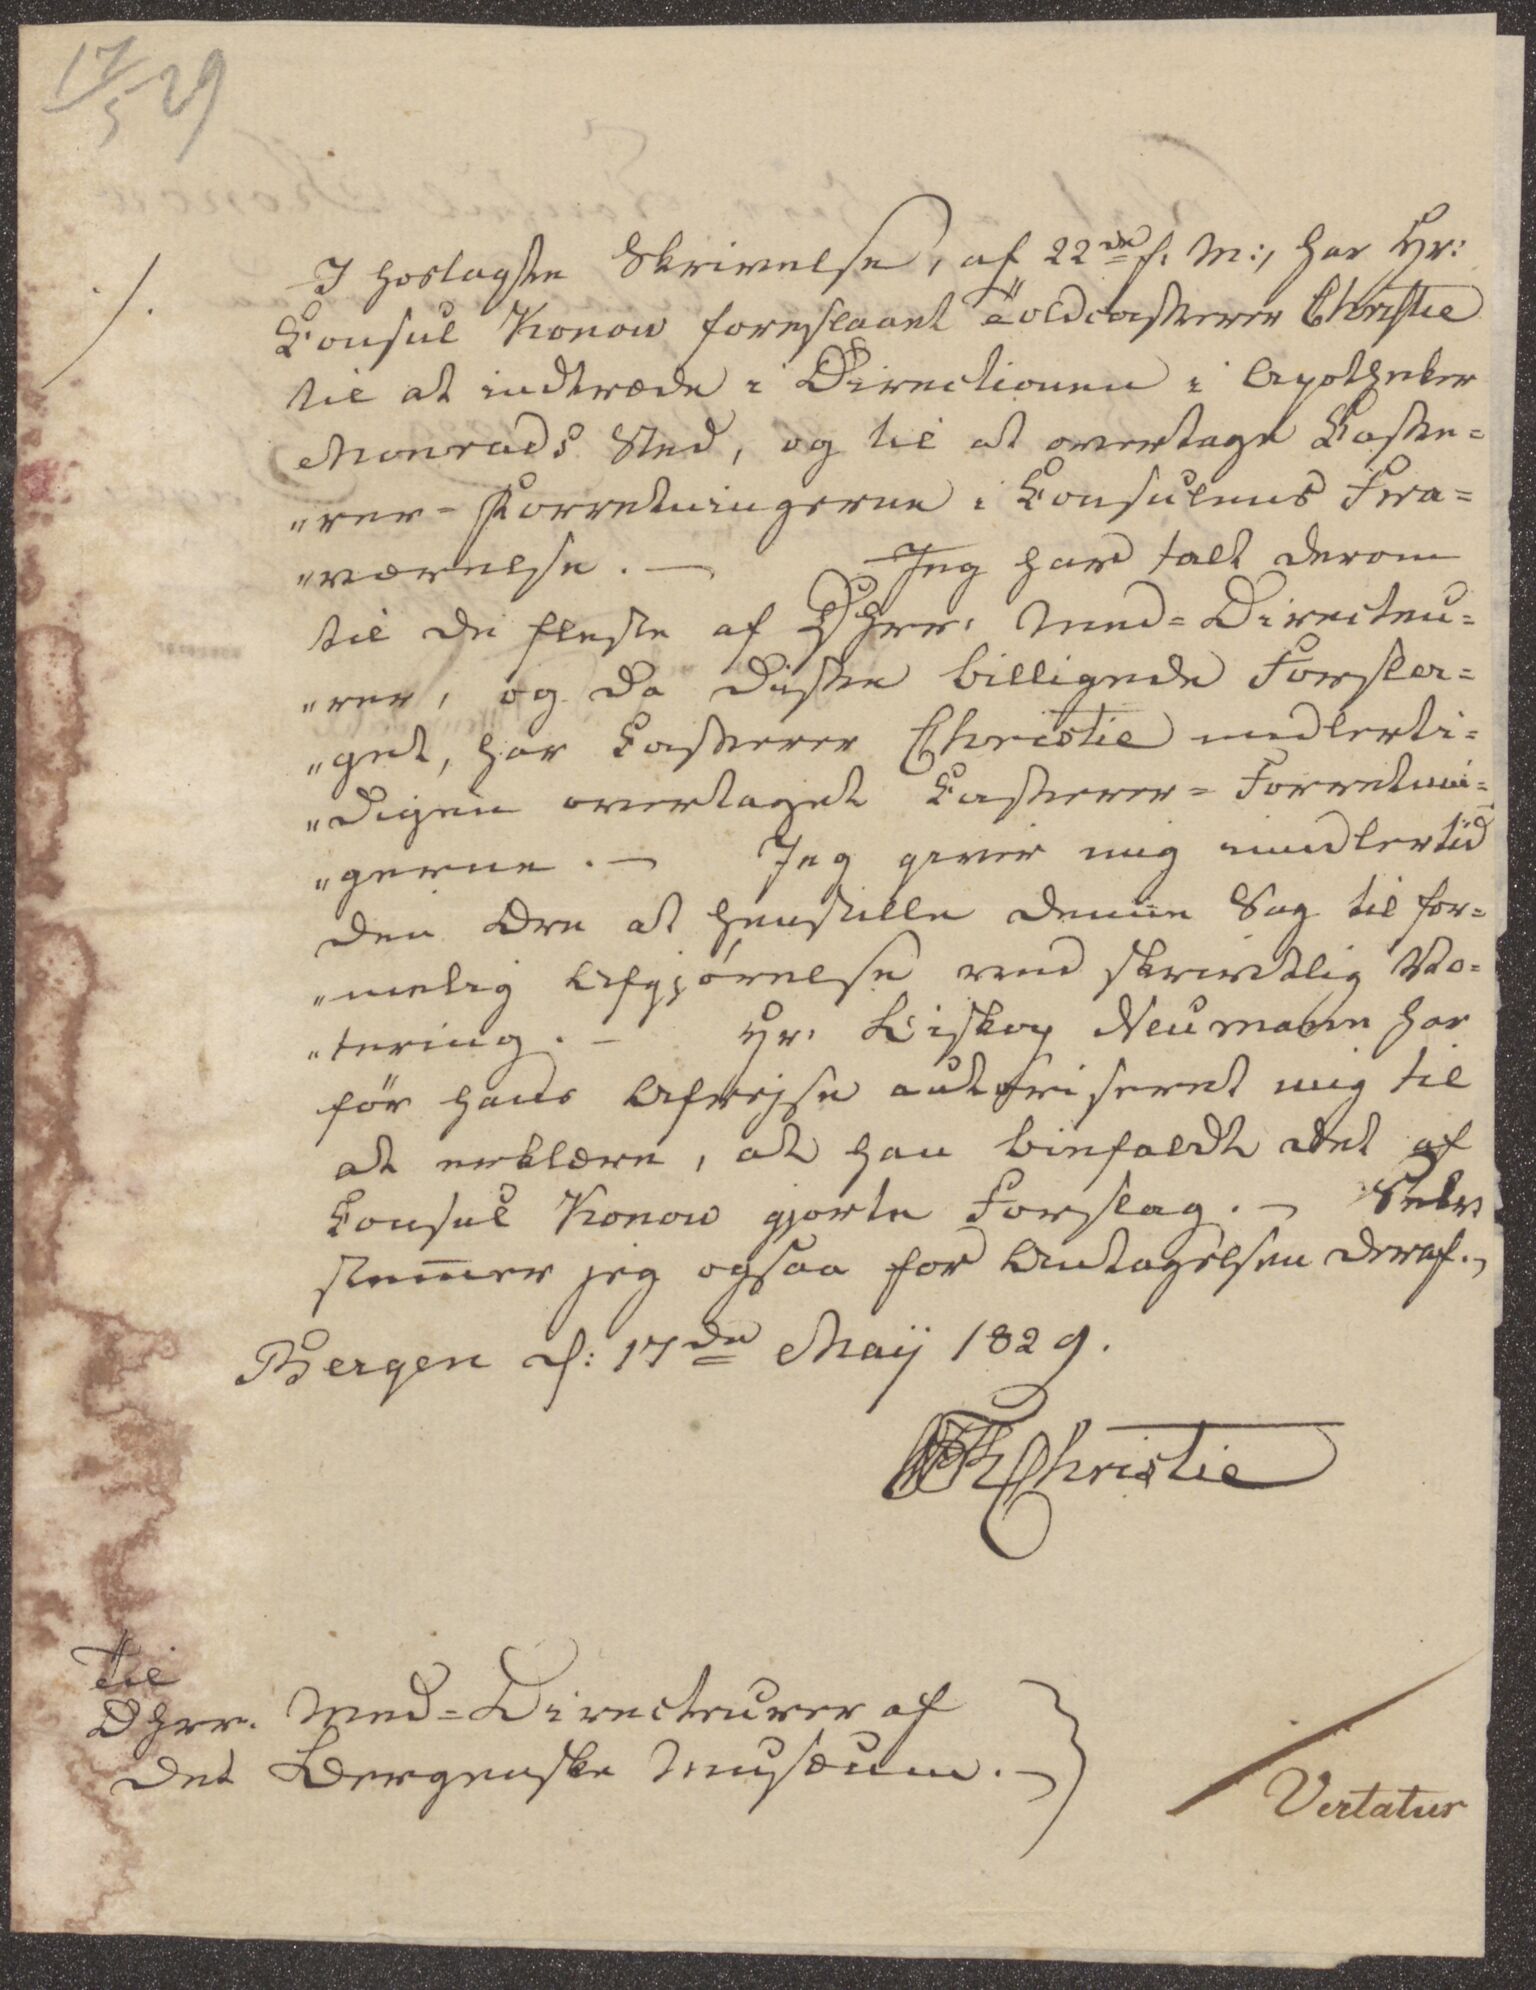 17/5 29
I hoslagte Skrivelse, af 22de f. M:, har Hr:
Consul Konow foreslaaet Toldcasserer Christie
til at indtræde i Directionen i Apotheker
Monrads Sted, og til at overtage Casse=
"rer-Forretningerne i Consulens Fra=
"værelse. — Jeg har talt derom
til de fleste af DHrr. Med=Directeu=
"rer, og da disse billigede Forsla=
"get, har Casserer Christie midlerti=
"digen overtaget Casserer=Forretnin=
"gerne. — Jeg giver mig imidlertid
den Ære at henstille denne Sag til for=
"melig Afgjørelse ved skrivtlig Vo=
"tering. — Hr. Biskop Neumann har
før hans Afrejse autoriseret mig til
at erklære, at han biefaldt det af
Consul Konow gjorte Forslag. — Selv
stemmer jeg ogsaa for Antagelsen deraf. —
Bergen d: 17de Maij 1829.
WFKChristie
Til
DHrr. Med=Directeurer af
det Bergenske Musæum. —
Vertatur